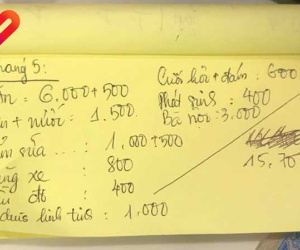 háng 5:
ăn: 6.000+500
+ nước: 1.500
sữa ...: 1.000+500
xe: 800
đồ: 400
linh tinh: 1.000
Cưới hỏi + đám: 600
Phát sinh: 400
Bà nội: 3.000
15.70